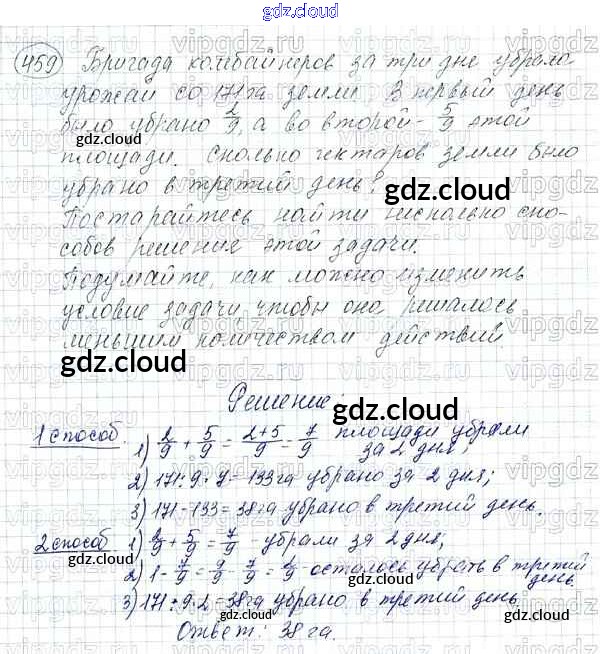 gdz.cloud
459 Бригада комбайнеров за три дне убрала
урожай со 171 га земли. В первый день
было убрано 2/9, а во второй - 5/9 этой
площади. Сколько гектаров земли было
убрано в третий день?
gdz.cloud
Постарайтесь найти несколько спо-
собов решения этой задачи.
Подумайте, как можно изменить
условие задачи чтобы она решалось
меньшим количеством действий
gdz.cloud
gdz.cloud
Решение:
1 способ. 1) 2/9 + 5/9 = (2+5)/9 = 7/9 площади убрали
за 2 дня;
2) 171:9·7=133га убрано за 2 дня;
3) 171-133=38га убрано в третий день.
2 способ 1) 2/9 + 5/9 = 7/9 - убрали за 2 дня;
2) 1 - 7/9 = 9/9 - 7/9 = 2/9 осталось убрать в третий
день
3) 171:9·2=38га убрано в третий день
Ответ: 38 га.
gdz.cloud
gdz.cloud
gdz.cloud